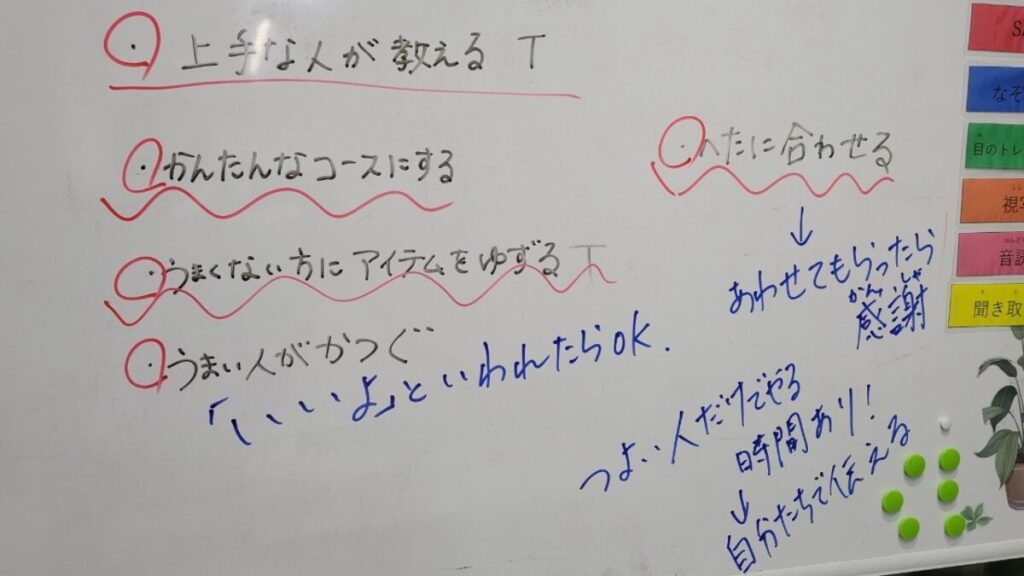 ・上手な人が教える T
・かんたんなコースにする
・うまくない方にアイテムをゆずる T
・うまい人がかつぐ
「いいよ」といわれたらOK.
・へたに合わせる
↓
あわせてもらったら
かんしゃ
感謝
つよい人だけでやる
時間あり!
↓
自分たちで伝える
なぞ
目のトレ
視写
音読
聞き取